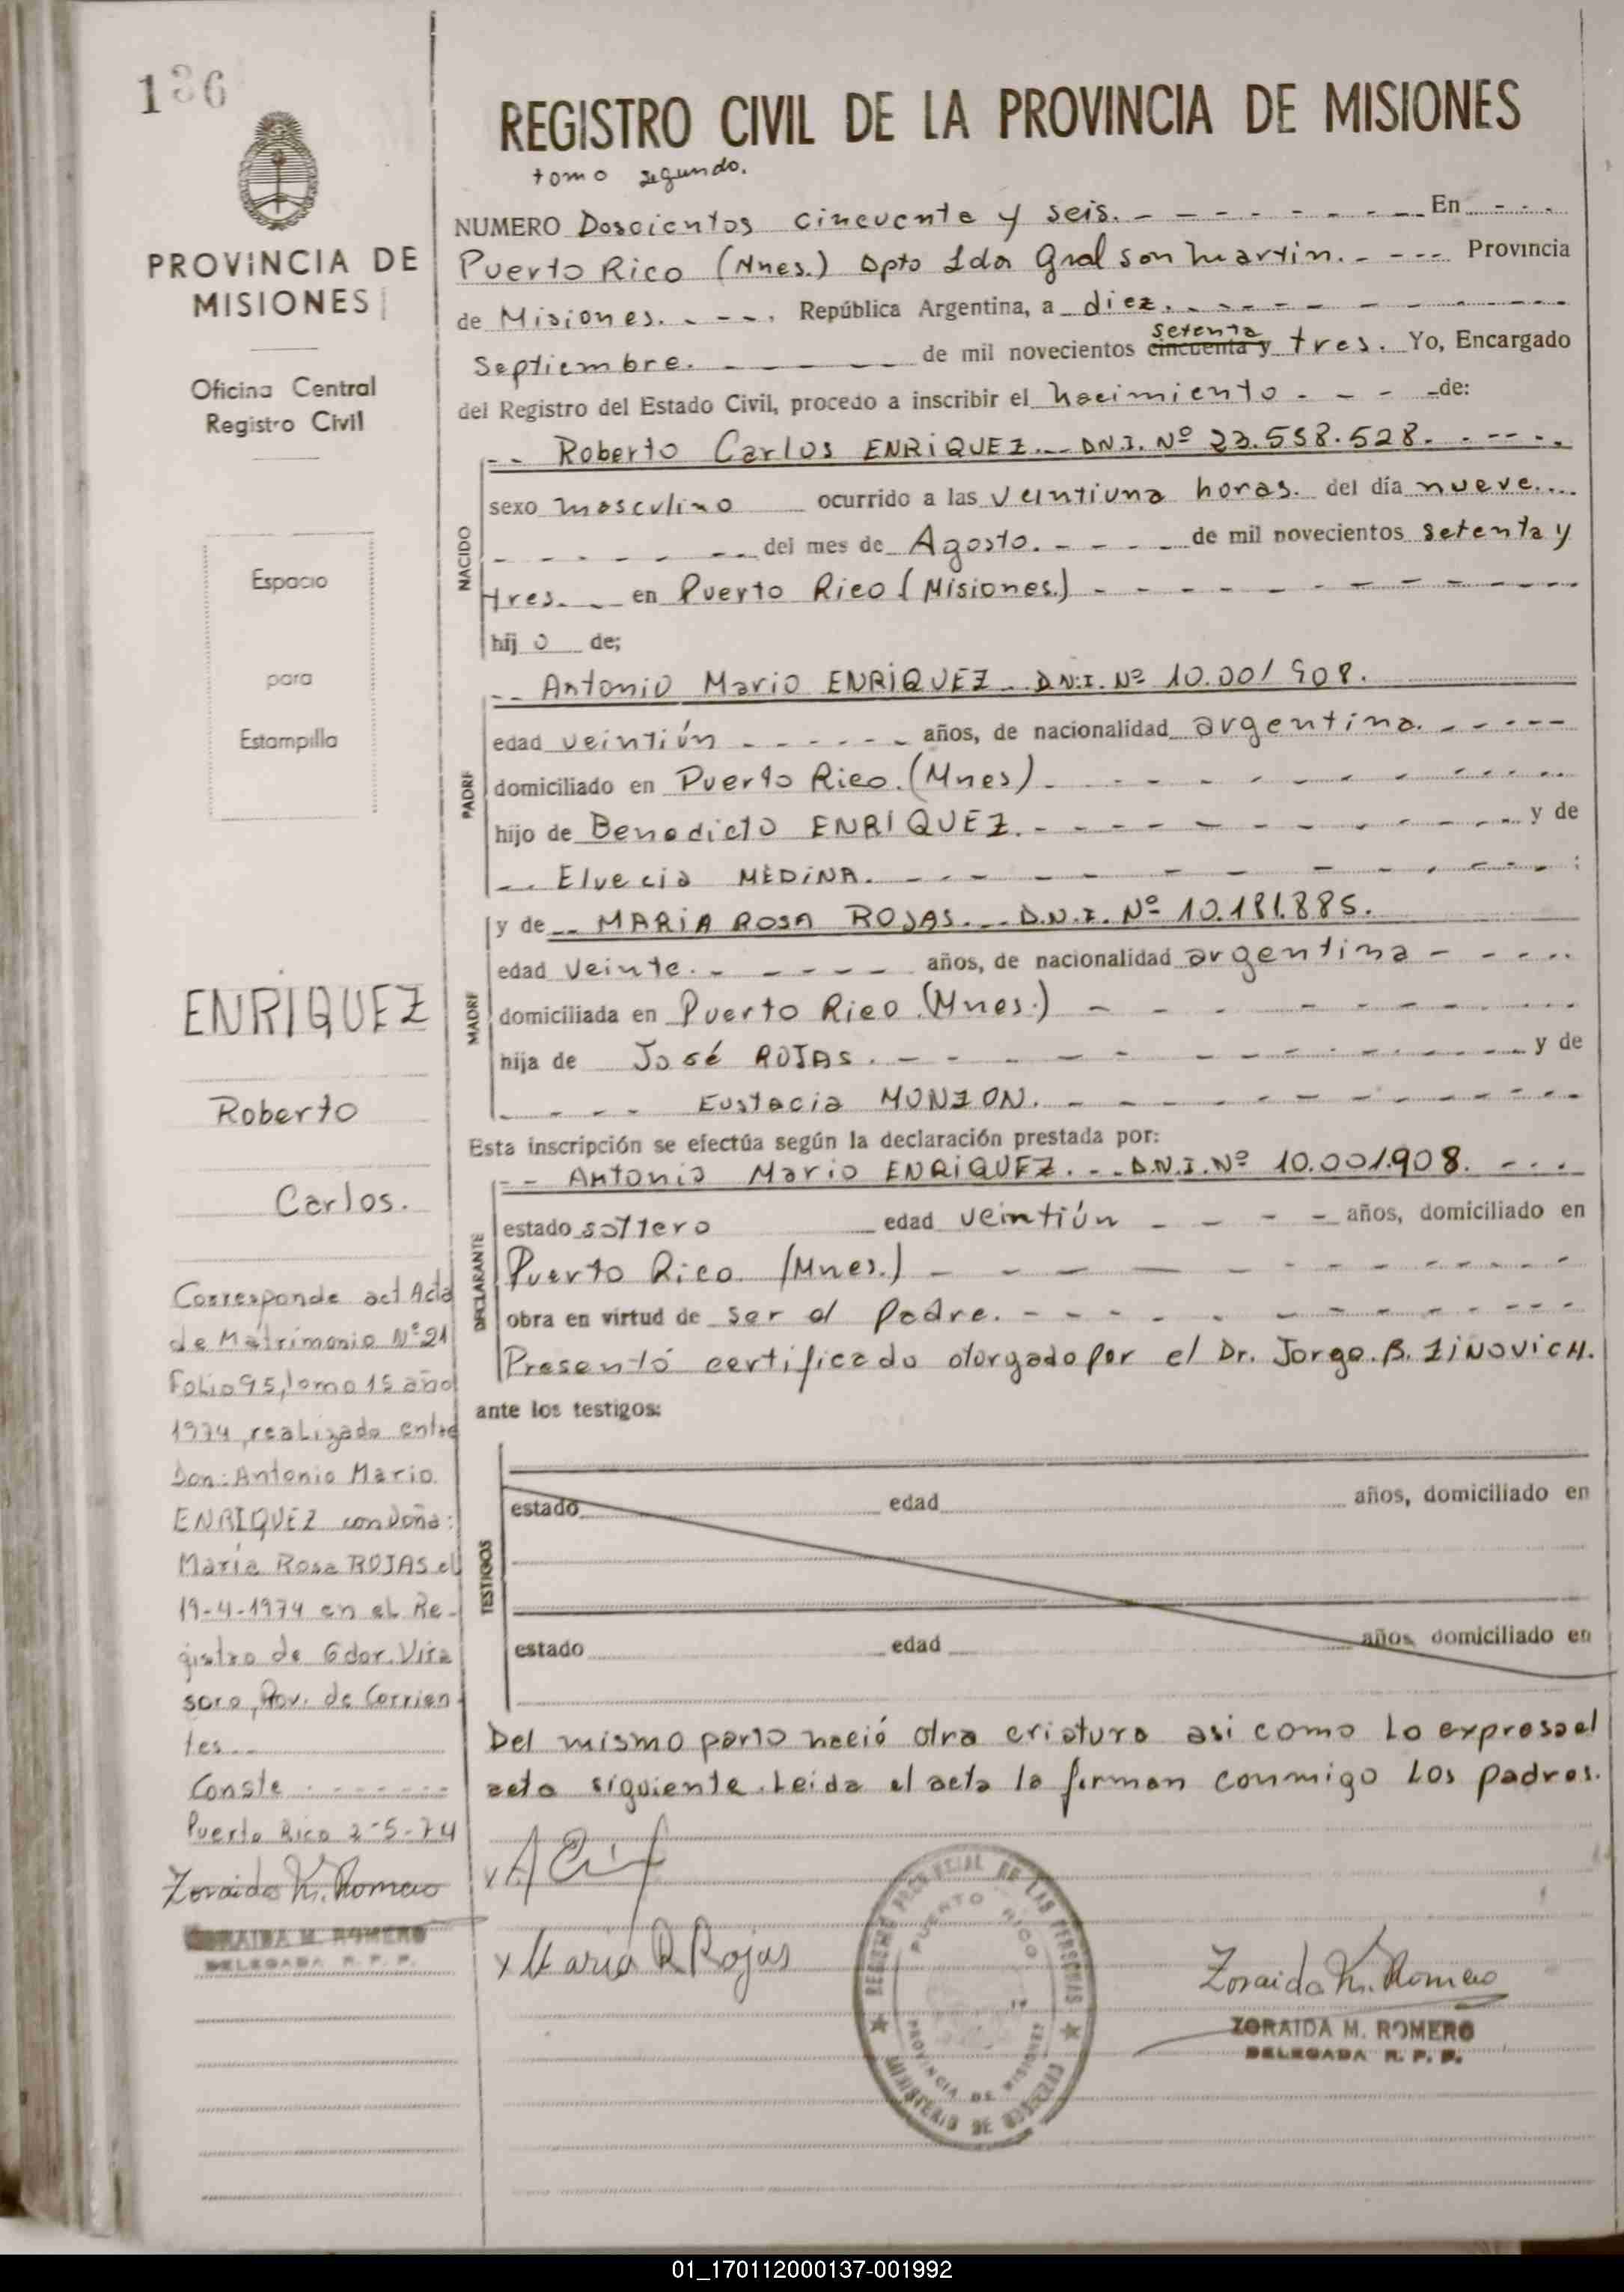 136
REGISTRO CIVIL DE LA PROVINCIA DE MISIONES
tomo segundo.
PROVINCIA DE
MISIONES
Oficina Central
Registro Civil
Espacio
para
Estampilla
ENRIQUEZ
Roberto
Carlos.
Corresponde act Acta
de Matrimonio Nº 21
Folio 95, tomo 15 año
1974, realizado entre
Don: Antonio Mario
ENRIQUEZ con Doña:
María Rosa ROJAS el
19-4-1974 en el Re-
gistro de Gdor. Vira
soro, Prov. de Corrien
tes..
Conste
Puerto Rico 2-5-74
Zoraida M. Romero
ZORAIDA M. ROMERO
DELEGADA R. P. P.
NUMERO Doscientos cincuenta y seis. En
Puerto Rico (Mnes.) Dpto Ldor Gral San Martin. Provincia
de Misiones. República Argentina, a diez.
setenta
Septiembre. de mil novecientos cincuenta y tres. Yo, Encargado
del Registro del Estado Civil, procedo a inscribir el nacimiento de:
Roberto Carlos ENRIQUEZ. D.N.I. Nº 23.558.528.
NACIDO
sexo masculino ocurrido a las veintiuna horas. del día nueve.
del mes de Agosto. de mil novecientos setenta y
tres. en Puerto Rico (Misiones.)
hij o de;
PADRE
Antonio Mario ENRIQUEZ. D.N.I. Nº 10.001908.
edad veintiún años, de nacionalidad argentina.
domiciliado en Puerto Rico. (Mnes)
hijo de Benedicto ENRIQUEZ. y de
Elvecia MEDINA. :
MADRE
y de MARIA ROSA ROJAS. D.N.I. Nº 10.181.885.
edad veinte. años, de nacionalidad argentina
domiciliada en Puerto Rico (Mnes.)
hija de José ROJAS. y de
Eustacia MONZON.
Esta inscripción se efectúa según la declaración prestada por:
DECLARANTE
Antonio Mario ENRIQUEZ. D.N.I. Nº 10.001.908.
estado soltero edad veintiún años, domiciliado en
Puerto Rico (Mnes.)
obra en virtud de ser el padre.
Presentó certificado otorgado por el Dr. Jorge. B. ZINOVICH.
ante los testigos:
TESTIGOS
estado edad años, domiciliado en
estado edad años, domiciliado en
Del mismo parto nació otra criatura asi como lo expresa el
acta siguiente. Leida el acta la firman conmigo los padres.
x Maria R Rojas
REGISTRO PROVINCIAL DE LAS PERSONAS
PUERTO RICO
PROVINCIA DE MISIONES
MINISTERIO DE GOBIERNO
Zoraida M. Romero
ZORAIDA M. ROMERO
DELEGADA R. P. P.
01_170112000137-001992